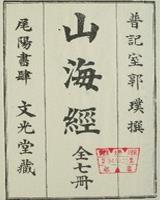 晉記室郭璞撰
山海經
全七冊
尾陽書肆 文光堂藏